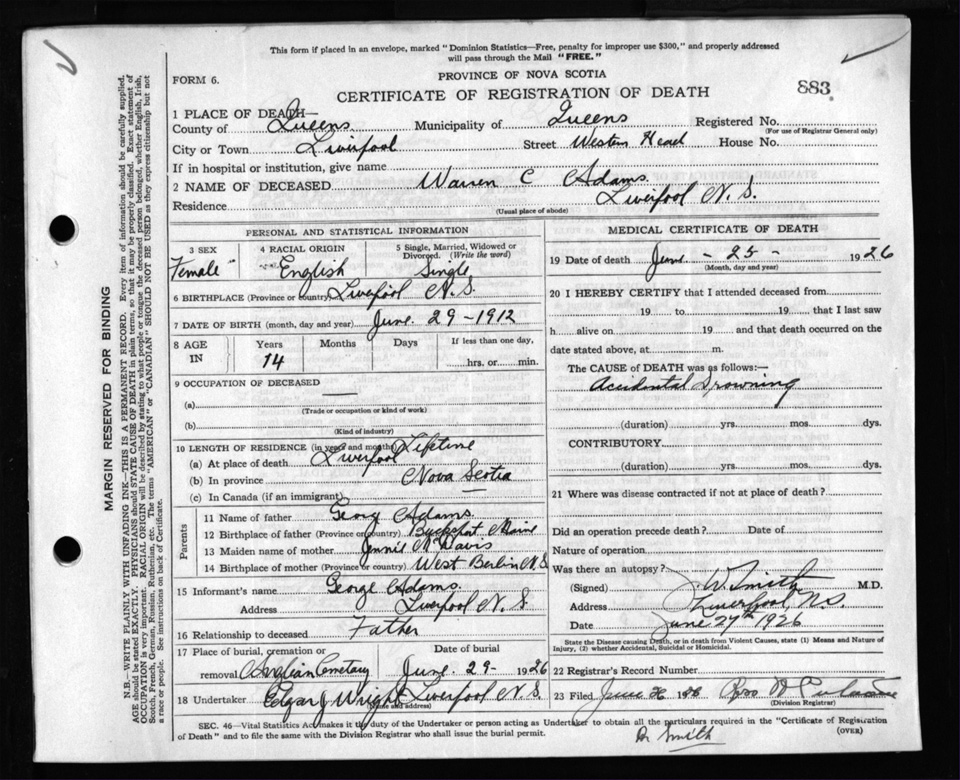 This form if placed in an envelope, marked "Dominion Statistics—Free, penalty for improper use $300," and properly addressed
will pass through the Mail "FREE."
PROVINCE OF NOVA SCOTIA
FORM 6.
CERTIFICATE OF REGISTRATION OF DEATH
883
1 PLACE OF DEATH—
County of Queens Municipality of Queens Registered No.
(For use of Registrar General only)
City or Town Liverpool Street Western Head House No.
If in hospital or institution, give name
2 NAME OF DECEASED Warren C Adams.
Residence Liverpool N. S.
(Usual place of abode)
PERSONAL AND STATISTICAL INFORMATION
3 SEX 4 RACIAL ORIGIN 5 Single, Married, Widowed or Divorced. (Write the word)
Female English Single
6 BIRTHPLACE (Province or country) Liverpool N. S.
7 DATE OF BIRTH (month, day and year) June. 29-1912
8 AGE IN Years Months Days If less than one day,
14 hrs. or min.
9 OCCUPATION OF DECEASED
(a)
(Trade or occupation or kind of work)
(b)
(Kind of industry)
10 LENGTH OF RESIDENCE (in years and months) Lifetime
(a) At place of death Liverpool
(b) In province Nova Scotia
(c) In Canada (if an immigrant)
Parents
11 Name of father Georg Adams.
12 Birthplace of father (Province or country) Maine
13 Maiden name of mother Jennie N Davis
14 Birthplace of mother (Province or country) West Berlin N. S
15 Informant's name George Adams.
Address Liverpool N. S.
16 Relationship to deceased Father
17 Place of burial, cremation or removal Date of burial
Anglian Cemetary June. 29- 1926
18 Undertaker Edgar J Wright Liverpool N. S.
(Name and address)
MEDICAL CERTIFICATE OF DEATH
19 Date of death June - 25 - 1926
(Month, day and year)
20 I HEREBY CERTIFY that I attended deceased from
19 to 19 that I last saw
h alive on 19 and that death occurred on the
date stated above, at m.
The CAUSE of DEATH was as follows:—
Accidental Drowning
(duration) yrs. mos. dys.
CONTRIBUTORY
(duration) yrs. mos. dys.
21 Where was disease contracted if not at place of death?
Did an operation precede death? Date of
Nature of operation
Was there an autopsy?
(Signed) J. W. Smith M.D.
Address Liverpool, N.S.
Date June 27th 1926
State the Disease causing Death, or in death from Violent Causes, state (1) Means and Nature of
Injury, (2) whether Accidental, Suicidal or Homicidal.
22 Registrar's Record Number
23 Filed June 26 1926
(Division Registrar)
SEC. 46—Vital Statistics Act makes it the duty of the Undertaker or person acting as Undertaker to obtain all the particulars required in the "Certificate of Registration
of Death" and to file the same with the Division Registrar who shall issue the burial permit.
(OVER)
Dr Smith
MARGIN RESERVED FOR BINDING
N.B.—WRITE PLAINLY WITH UNFADING INK—THIS IS A PERMANENT RECORD. Every item of information should be carefully supplied.
AGE should be stated EXACTLY. PHYSICIANS should STATE CAUSE OF DEATH in plain terms, so that it may be properly classified. Exact statement of
OCCUPATION is very important. RACIAL ORIGIN will be described by stating to what people or tongue the deceased person belonged, whether English, Irish,
Scotch, French, German, Russian, Ruthenian, etc. The terms "AMERICAN" or "CANADIAN" SHOULD NOT BE USED as they express citizenship but not
a race or people. See instructions on back of Certificate.